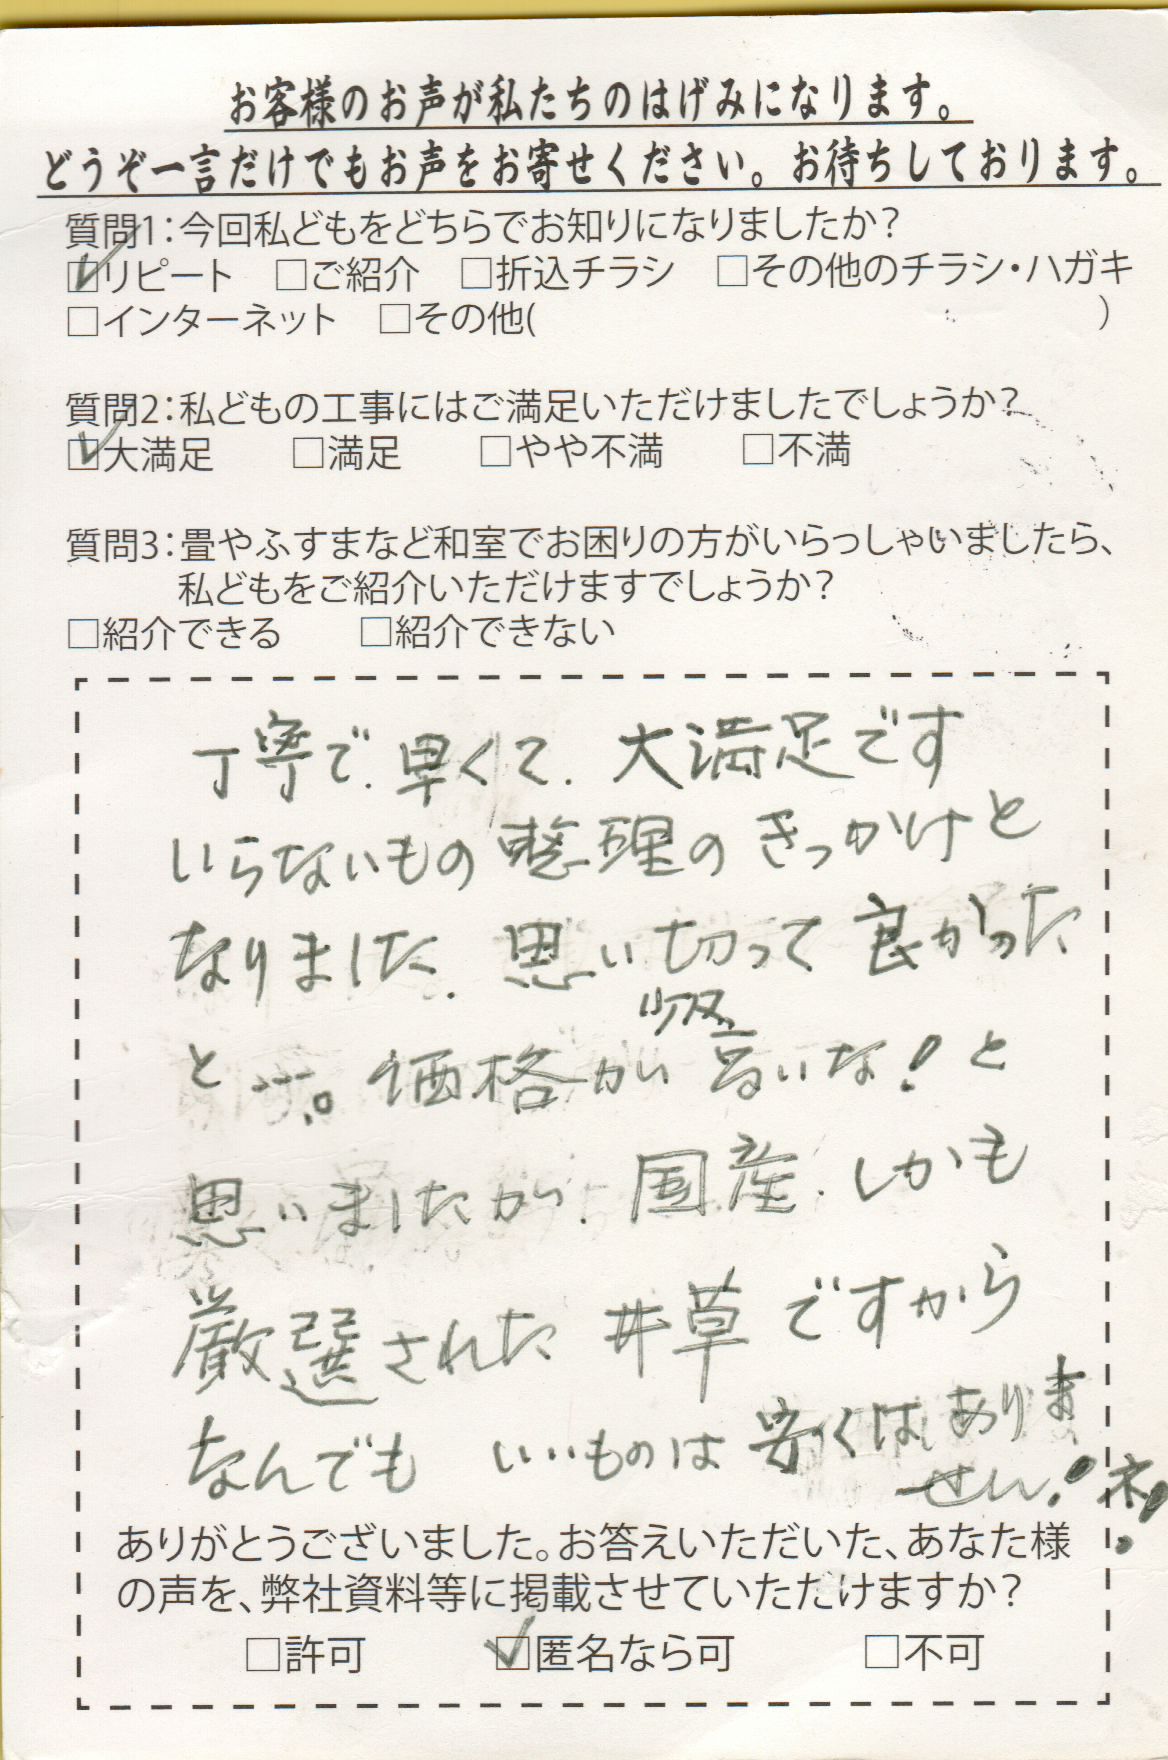 お客様のお声が私たちのはげみになります。
どうぞ一言だけでもお声をお寄せください。お待ちしております。
質問1：今回私どもをどちらでお知りになりましたか？
☑リピート □ご紹介 □折込チラシ □その他のチラシ・ハガキ
□インターネット □その他( )
質問2：私どもの工事にはご満足いただけましたでしょうか？
☑大満足 □満足 □やや不満 □不満
質問3：畳やふすまなど和室でお困りの方がいらっしゃいましたら、
私どもをご紹介いただけますでしょうか？
□紹介できる □紹介できない
丁寧で、早くて、大満足です
いらないもの整理のきっかけと
なりました。思い切って良かった
と…。価格が いな！と
思いましたが、国産、しかも
厳選された井草ですから
なんでも いいものは安くはありま
せん！ネ！
ありがとうございました。お答えいただいた、あなた様
の声を、弊社資料等に掲載させていただけますか？
□許可 ☑匿名なら可 □不可